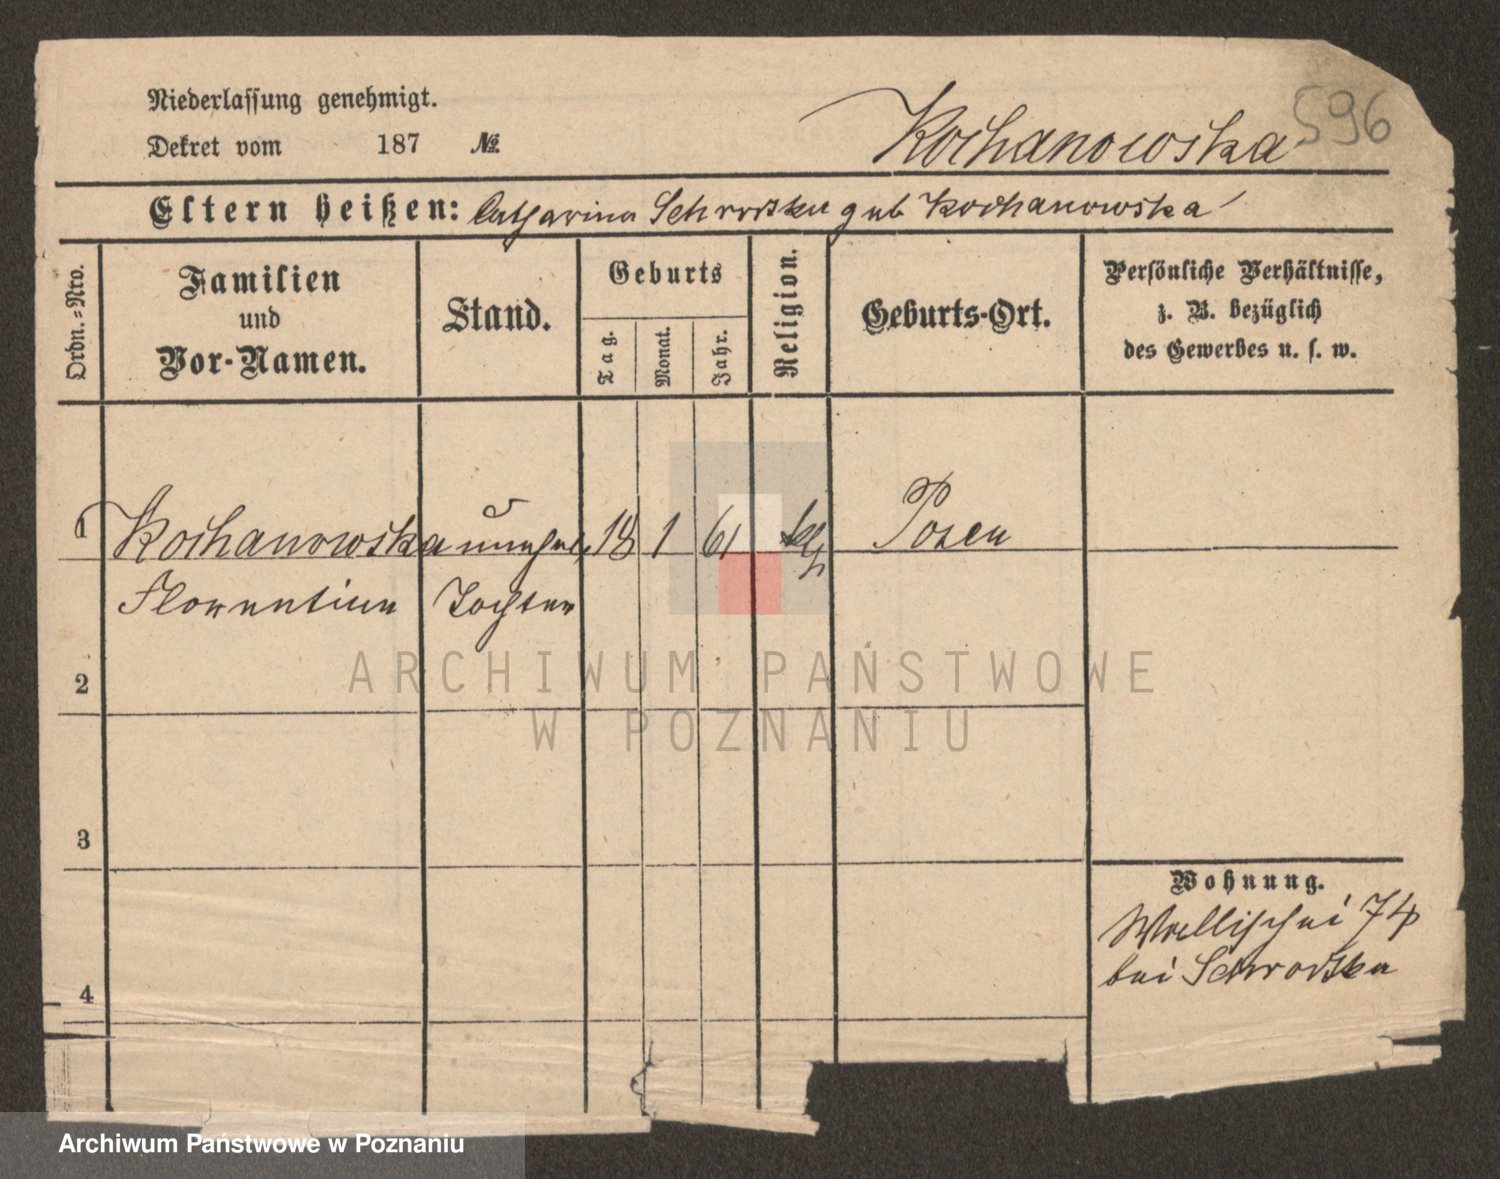 Niederlassung genehmigt.
Dekret vom 187 No.
Kochanowska 596
Eltern heißen: Catharina Schrodska geb Kochanowska
Ordn.-Nro.
Familien
und
Vor-Namen.
Stand.
Geburts
Tag.
Monat.
Jahr.
Religion.
Geburts-Ort.
Persönliche Verhältnisse,
z. B. bezüglich
des Gewerbes u. s. w.
1 Kochanowska unehel. 18 1 61 kth Posen
Florentine Tochter
2
3
4
Wohnung.
Wallischei 74
bei Schrodska
ARCHIWUM PAŃSTWOWE
W POZNANIU
Archiwum Państwowe w Poznaniu